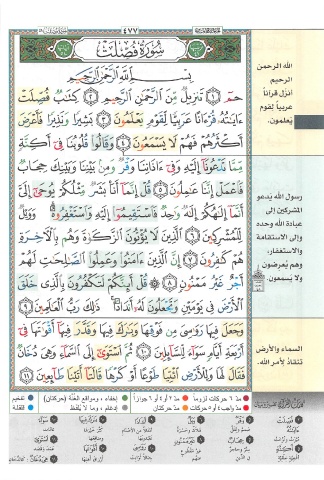 ٤٧٧
سُورَةُ فُصِّلَتْ
بِسْمِ اللَّهِ الرَّحْمَٰنِ الرَّحِيمِ
حمٓ ١ تَنزِيلٌ مِّنَ الرَّحْمَٰنِ الرَّحِيمِ ٢ كِتَابٌ فُصِّلَتْ
ءَايَاتُهُ قُرْءَانًا عَرَبِيًّا لِّقَوْمٍ يَعْلَمُونَ ٣ بَشِيرًا وَنَذِيرًا فَأَعْرَضَ
أَكْثَرُهُمْ فَهُمْ لَا يَسْمَعُونَ ٤ وَقَالُوا قُلُوبُنَا فِي أَكِنَّةٍ
مِّمَّا تَدْعُونَا إِلَيْهِ وَفِي ءَاذَانِنَا وَقْرٌ وَمِن بَيْنِنَا وَبَيْنِكَ حِجَابٌ
فَاعْمَلْ إِنَّنَا عَامِلُونَ ٥ قُلْ إِنَّمَا أَنَا بَشَرٌ مِّثْلُكُمْ يُوحَىٰ إِلَيَّ
أَنَّمَا إِلَٰهُكُمْ إِلَٰهٌ وَاحِدٌ فَاسْتَقِيمُوا إِلَيْهِ وَاسْتَغْفِرُوهُ وَوَيْلٌ
لِّلْمُشْرِكِينَ ٦ الَّذِينَ لَا يُؤْتُونَ الزَّكَوٰةَ وَهُم بِالْءَاخِرَةِ
هُمْ كَافِرُونَ ٧ إِنَّ الَّذِينَ ءَامَنُوا وَعَمِلُوا الصَّالِحَاتِ لَهُمْ
أَجْرٌ غَيْرُ مَمْنُونٍ ٨ قُلْ أَئِنَّكُمْ لَتَكْفُرُونَ بِالَّذِي خَلَقَ
الْأَرْضَ فِي يَوْمَيْنِ وَتَجْعَلُونَ لَهُ أَندَادًا ذَٰلِكَ رَبُّ الْعَالَمِينَ ٩
وَجَعَلَ فِيهَا رَوَاسِيَ مِن فَوْقِهَا وَبَارَكَ فِيهَا وَقَدَّرَ فِيهَا أَقْوَاتَهَا فِي
أَرْبَعَةِ أَيَّامٍ سَوَاءً لِّلسَّائِلِينَ ١٠ ثُمَّ اسْتَوَىٰ إِلَى السَّمَاءِ وَهِيَ دُخَانٌ
فَقَالَ لَهَا وَلِلْأَرْضِ ائْتِيَا طَوْعًا أَوْ كَرْهًا قَالَتَا أَتَيْنَا طَائِعِينَ ١١
الله الرحمن
الرحيم
انزل قراناً
عربياً لقوم
يَعلمون.
رسول الله يدعو
المشركين إلى
عبادة الله وحده
وإلى الاستقامة
والاستغفار،
وهم يُعرضون
و لا يسمعون.
السماء والأرض
تنقاد لأمر الله.